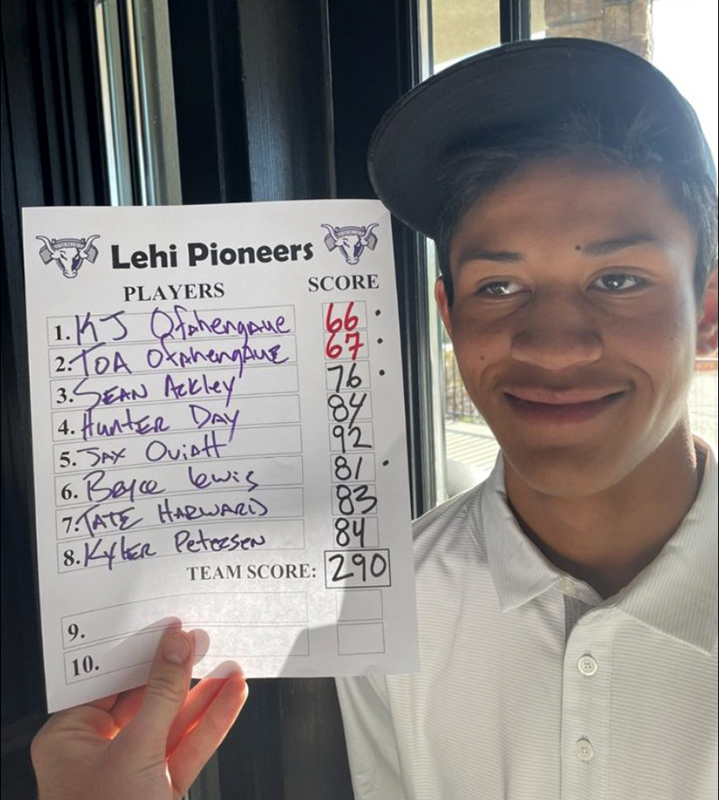 Lehi Pioneers
PLAYERS SCORE
1. KJ Ofahengaue 66 •
2. TOA Ofahengaue 67 •
3. SEAN Ackley 76 •
4. Hunter Day 84
5. JAX Oviatt 92
6. Bryce Lewis 81 •
7. TATE HARWARD 83
8. Kyler Petersen 84
TEAM SCORE: 290
9.
10.